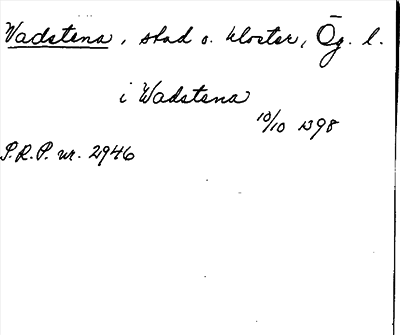 Vadstena, stad o. kloster, Ög. l.
i Wadstena
10/10 1398
P.R.P. nr. 2946